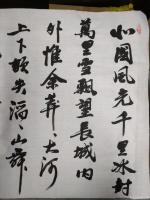 北國風光千里冰封
萬里雪飄望長城内
外惟余莽々大河
上下頓失滔々山舞